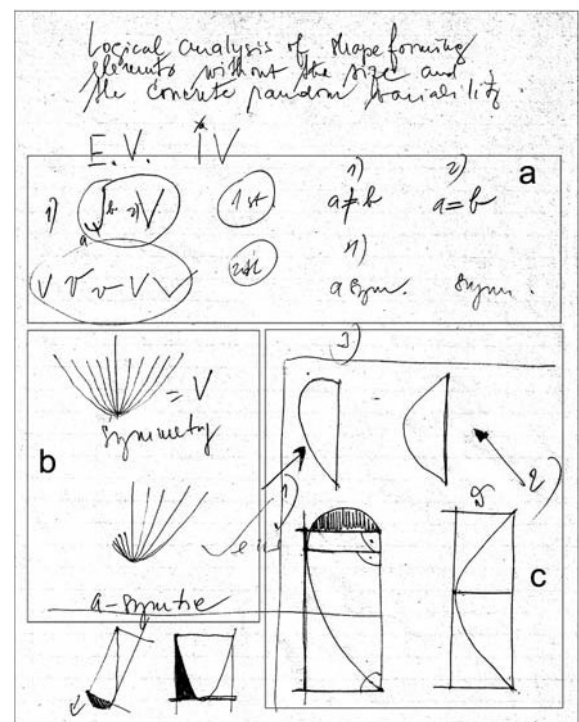 Logical analysis of shape forming
elements without the size and
the concrete random variability.
E. V. IV
a
1) 2)
1) b 2) V 1st a≠b a=b
a
V V V V V
asym. symm.
3)
= V
symmetry
b
1)
2)
c
a-symtrie